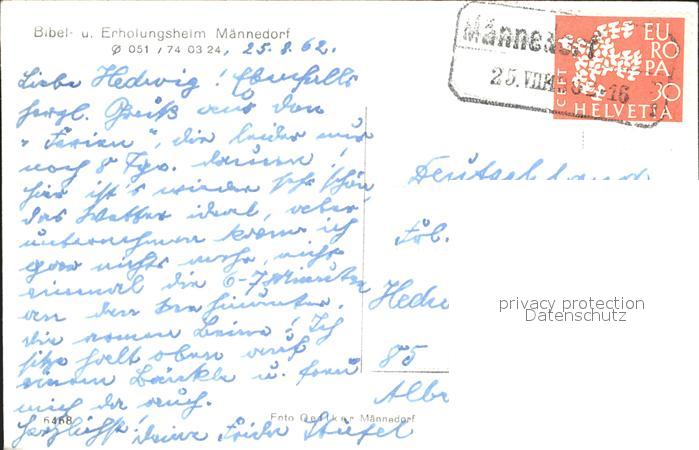 Bibel- u. Erholungsheim Männedorf
Ø 051 / 74 03 24, 25.8.62.
Liebe Hedwig! Ebenfalls
herzl. Grüß aus den
"Ferien", die leider nur
noch 8 Tge. dauern!
hier ist's wieder sehr schön,
das Wetter ideal, aber
unternehmen kann ich
gar nichts mehr, nicht
einmal die 6-7 Minuten
an den See hinunter.
die armen Beine! Ich
sitze halt oben auf
einem Bänkle u. freu
mich da auch.
6468
herzlichst! deine Frida Stiefel
Foto Oetiker Männedorf
Männedorf
25.VIII.62-16
CEPT
EUROPA
30
HELVETIA
Deutschland
Frl.
Hedw
privacy protection
Datenschutz
85
Albr